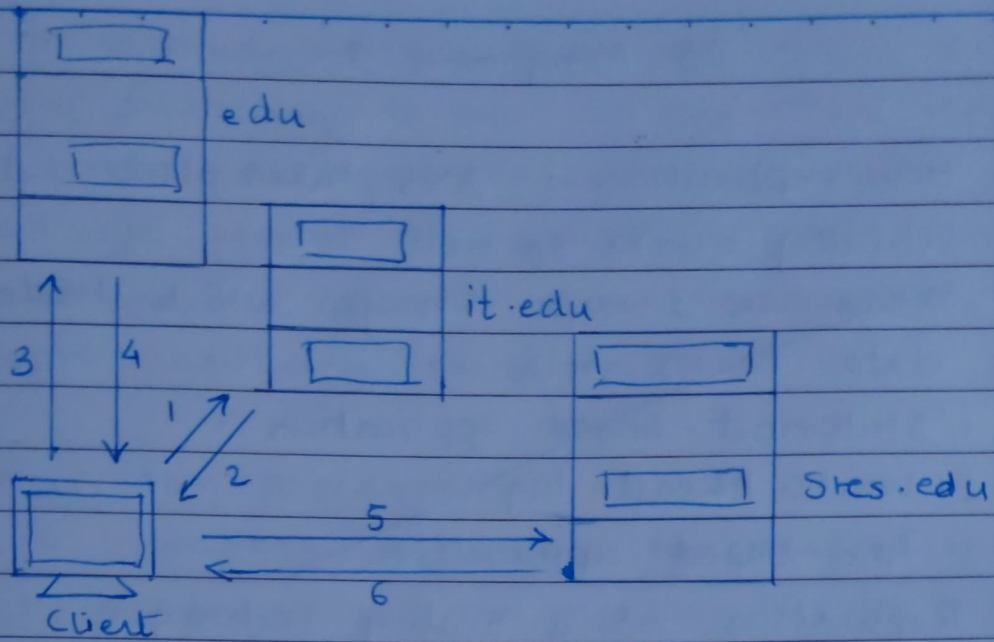 edu
it.edu
3
4
1
2
Sres.edu
5
6
Client